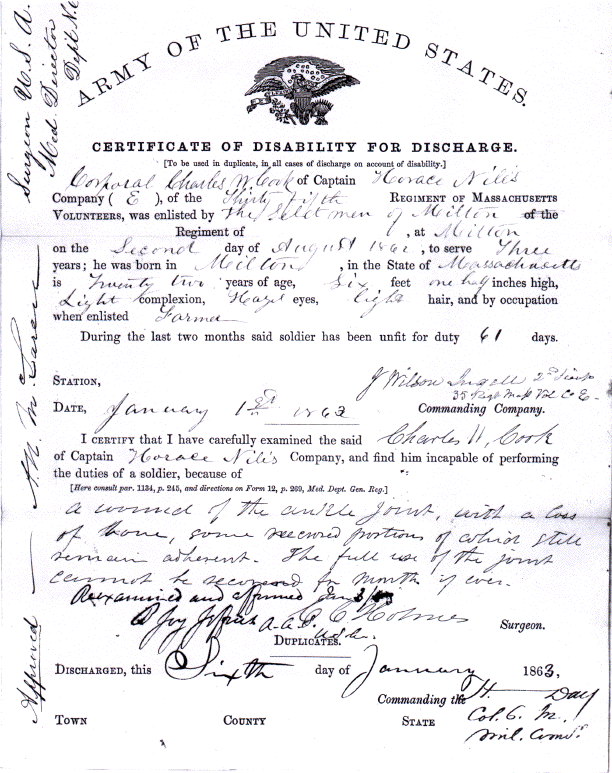 ARMY OF THE UNITED STATES.
CERTIFICATE OF DISABILITY FOR DISCHARGE.
[To be used in duplicate, in all cases of discharge on account of disability.]
Corporal Charles W. Cook of Captain Horace Niles
Company ( E ), of the Thirty fifth REGIMENT OF MASSACHUSETTS
VOLUNTEERS, was enlisted by The Select men of Milton of the
Regiment of , at Milton
on the Second day of August 1862 , to serve Three
years; he was born in Milton , in the State of Massachusetts
is Twenty two years of age, Six feet one half inches high,
Light complexion, Hazel eyes, light hair, and by occupation
when enlisted Farmer
During the last two months said soldier has been unfit for duty 61 days.
STATION,
J Wilson Ingell 2nd Lieut
35 Regt Mass Vol Co E
DATE, January 1st 1863
Commanding Company.
I CERTIFY that I have carefully examined the said Charles W. Cook
of Captain Horace Niles Company, and find him incapable of performing
the duties of a soldier, because of
[Here consult par. 1134, p. 245, and directions on Form 12, p. 269, Med. Dept. Gen. Reg.]
a wound of the ankle joint, with a loss
of bone, some necrosed portions of which still
remain adherent. The full use of the joint
cannot be recovered for month if ever.
Reexamined and affirmed Jan 3/63
C. C. Holmes
Surgeon.
DUPLICATES.
DISCHARGED, this Sixth day of January 1863,
Commanding the H. Day
Col. 6. M.
Mil. Comdr.
TOWN COUNTY STATE
Approved
Surgeon U.S.A.
Med. Director
Dept. N.E.